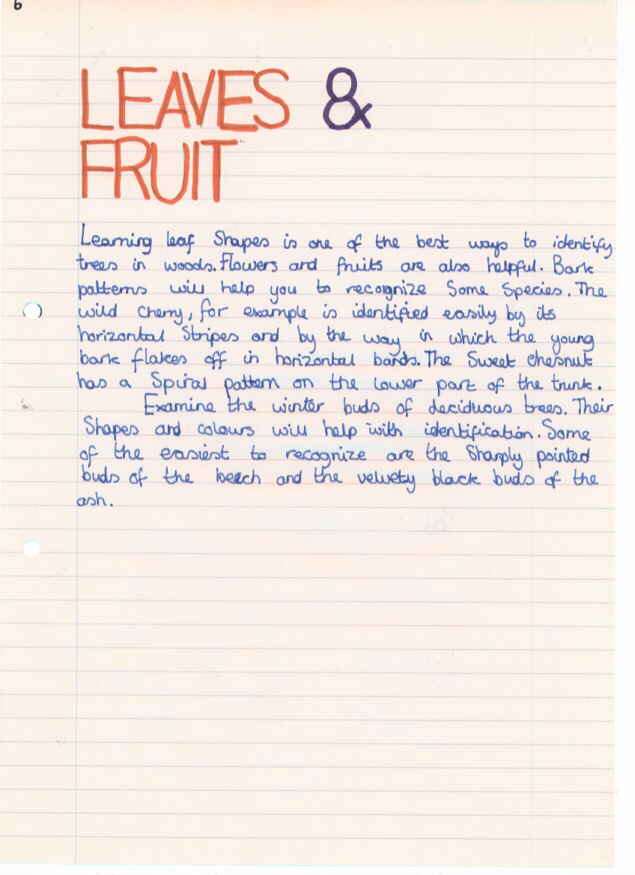 6
LEAVES &
FRUIT
Learning leaf Shapes is one of the best ways to identify
trees in woods. Flowers and fruits are also helpful. Bark
patterns will help you to recognize Some Species. The
wild cherry, for example is identified easily by its
horizontal Stripes and by the way in which the young
bark flakes off in horizontal bands. The Sweet chesnut
has a Spiral pattern on the lower part of the trunk.
Examine the winter buds of deciduous trees. Their
Shapes and colours will help with identification. Some
of the easiest to recognize are the Sharply pointed
buds of the beech and the velvety black buds of the
ash.